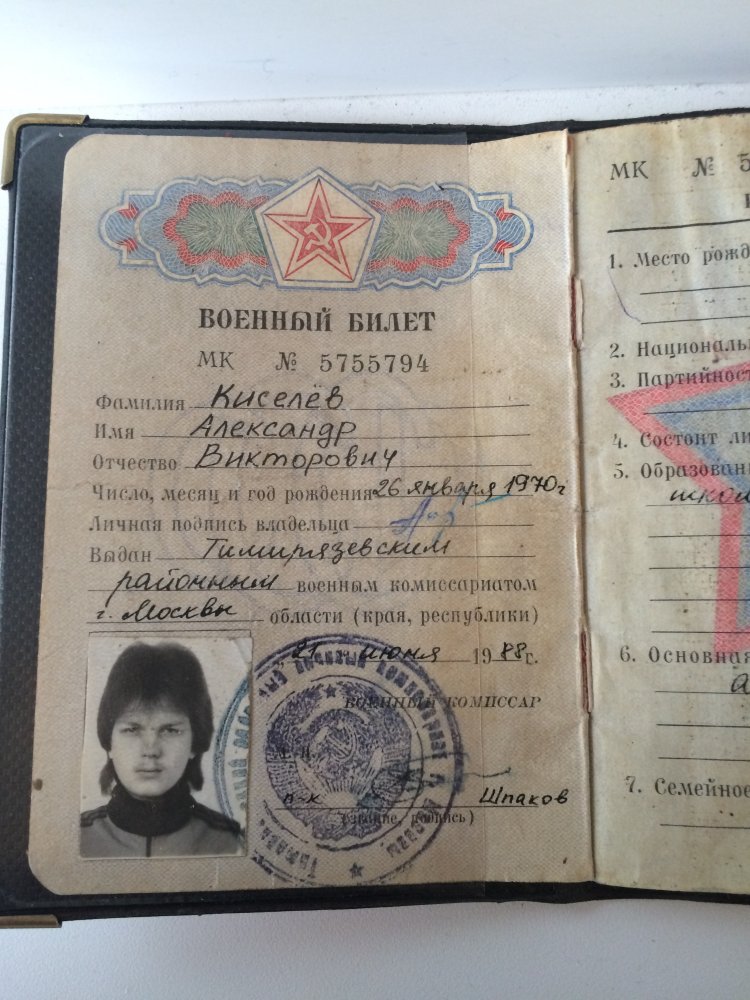 ВОЕННЫЙ БИЛЕТ
МК № 5755794
Фамилия Киселёв
Имя Александр
Отчество Викторович
Число, месяц и год рождения 26 января 1970г
Личная подпись владельца
Выдан Тимирязевским
районным военным комиссариатом
г. Москвы области (края, республики)
21 июня 1988г.
ВОЕННЫЙ КОМИССАР
п-к Шпаков
(звание, подпись)
МК № 5
1. Место рожд
2. Националь
3. Партийност
4. Состоит ли
5. Образован
школ
6. Основная
7. Семейное